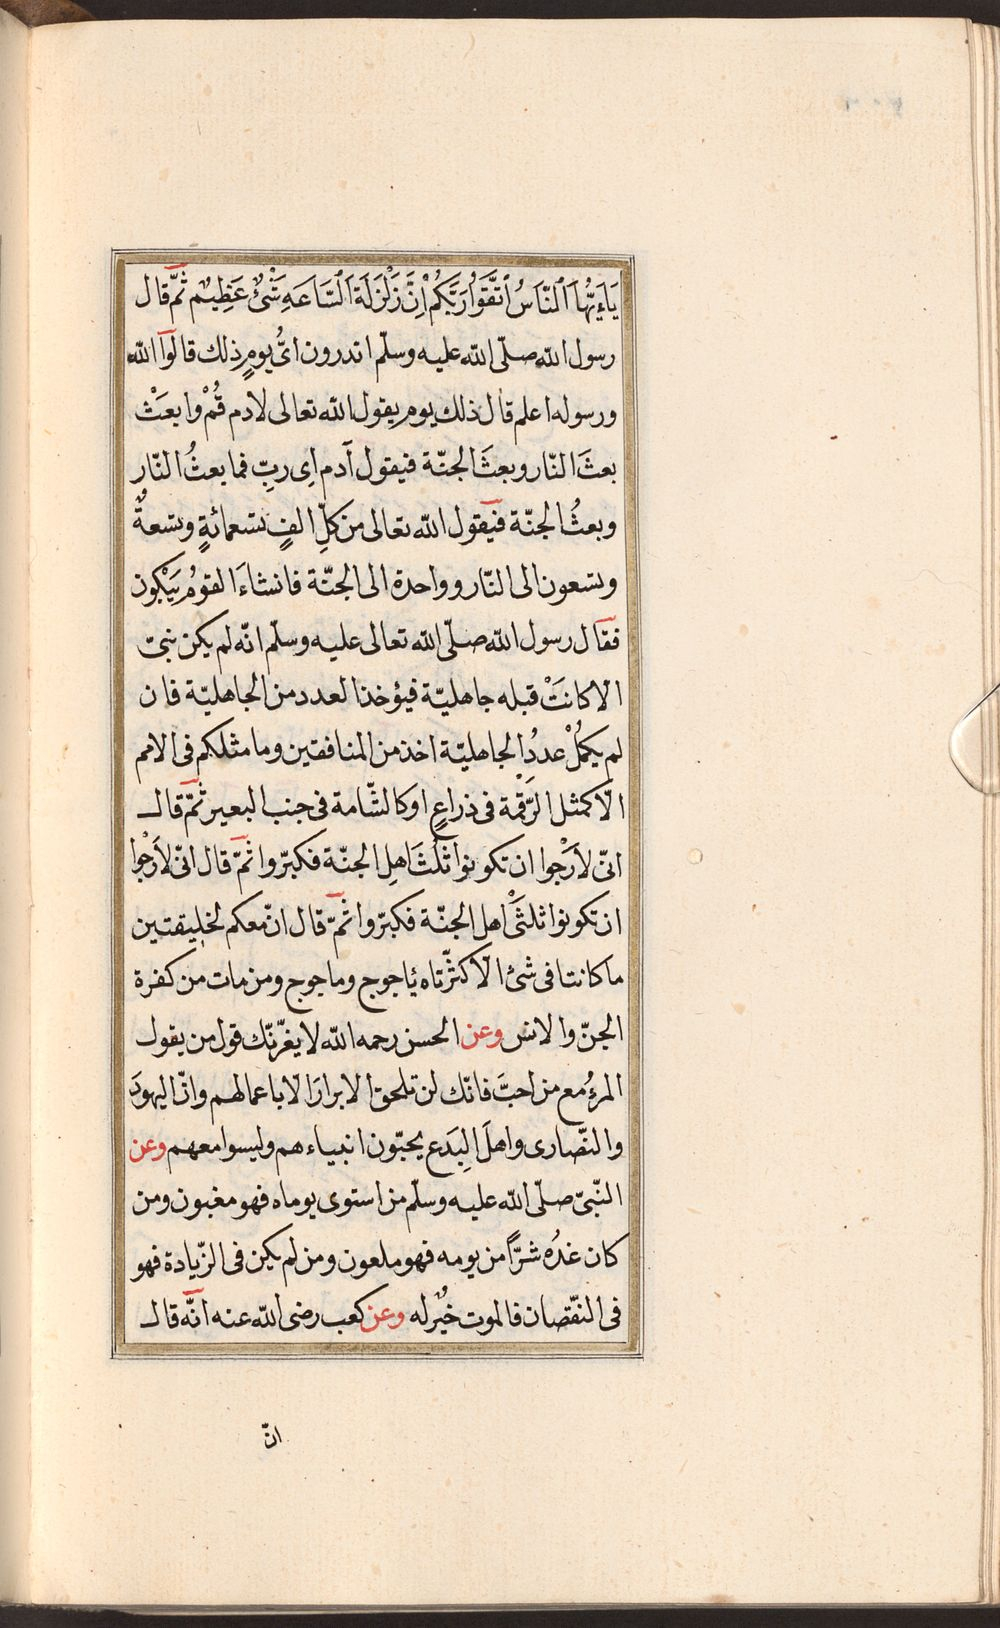 يَاَيُّهَا اَلنَّاسُ اُتَّقَوُا رَبَّكُمْ اِنَّ زَلْزَلَةَ السَّاعَةِ شَىْءٌ عَظِيمٌ ثمّ قال
رسول الله صلّى الله عليه وسلّم اتدرون اىُّ يومٍ ذلك قالوآ الله
ورسوله اعلم قال ذلك يوم يقول الله تعالى لادم قُمْ وابعَثْ
بعثَ النّار وبعثَ الجنّة فيقول آدم اى ربِّ فما بعثُ النّار
وبعثُ الجنّة فيقول الله تعالى من كلِّ الفٍ تسعمائةٍ وتسعةٌ
وتسعون الى النّار وواحدة الى الجنّة فانشاءَ القومُ يَبْكون
فقال رسول الله صلّى الله تعالى عليه وسلّم انّه لم يكن نبىّ
الا كانَتْ قبله جاهليّة فيؤخذ العدد من الجاهليّة فان
لم يكمُلْ عددُ الجاهليّة اخذ من المنافقين وما مثلكم فى الامم
الّا كمثل الرَّقْمة فى ذراعٍ او كالشّامة فى جنب البعير ثمّ قال
انّى لاَرْجوا ان تكونوا ثُلُثَ اهلِ الجنّة فكبّروا ثمّ قال انّى لاَرْجوا
ان تكونوا ثلثَىْ اهل الجنّة فكبّروا ثمّ قال انّ معكم لخليقتين
ما كانتا فى شئ الّا كثّرتاه ياجوج وماجوج ومن مات من كفرة
الجنّ والانس وعن الحسن رحمه الله لا يغرّنّك قول من يقول
المرءُ مع من احبّ فانّك لن تلحق الابرارَ الّا باعمالهم وانّ اليهودَ
والنّصارى واهلَ البِدَع يحبّون انبياءهم وليسوا معهم وعن
النّبىّ صلّى الله عليه وسلّم من استوى يوماه فهو مغبون ومن
كان غدُه شرًّا من يومه فهو ملعون ومن لم يكن فى الزّيادة فهو
فى النّقصان فالموت خيرٌ له وعن كعب رضى الله عنه انّه قال
انّ